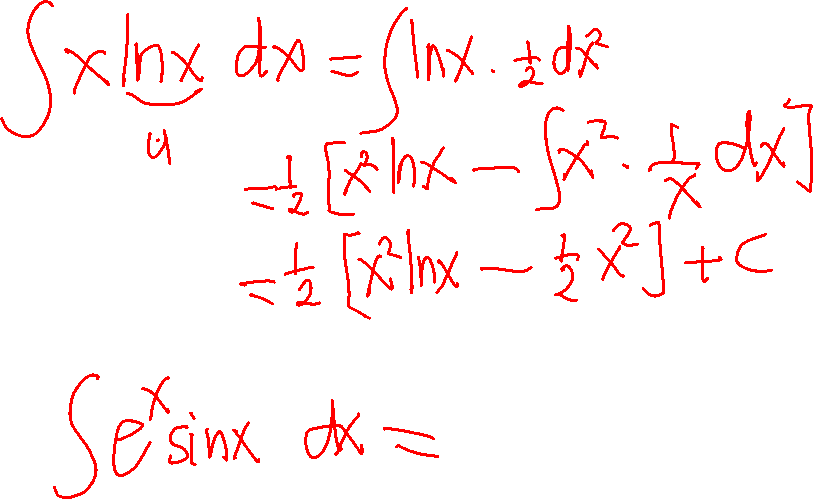 ∫ x lnx dx = ∫ lnx · ½ dx²
u
= ½ [x² lnx − ∫ x² · 1/x dx]
= ½ [x² lnx − ½ x²] + C
∫ eˣ sinx dx =